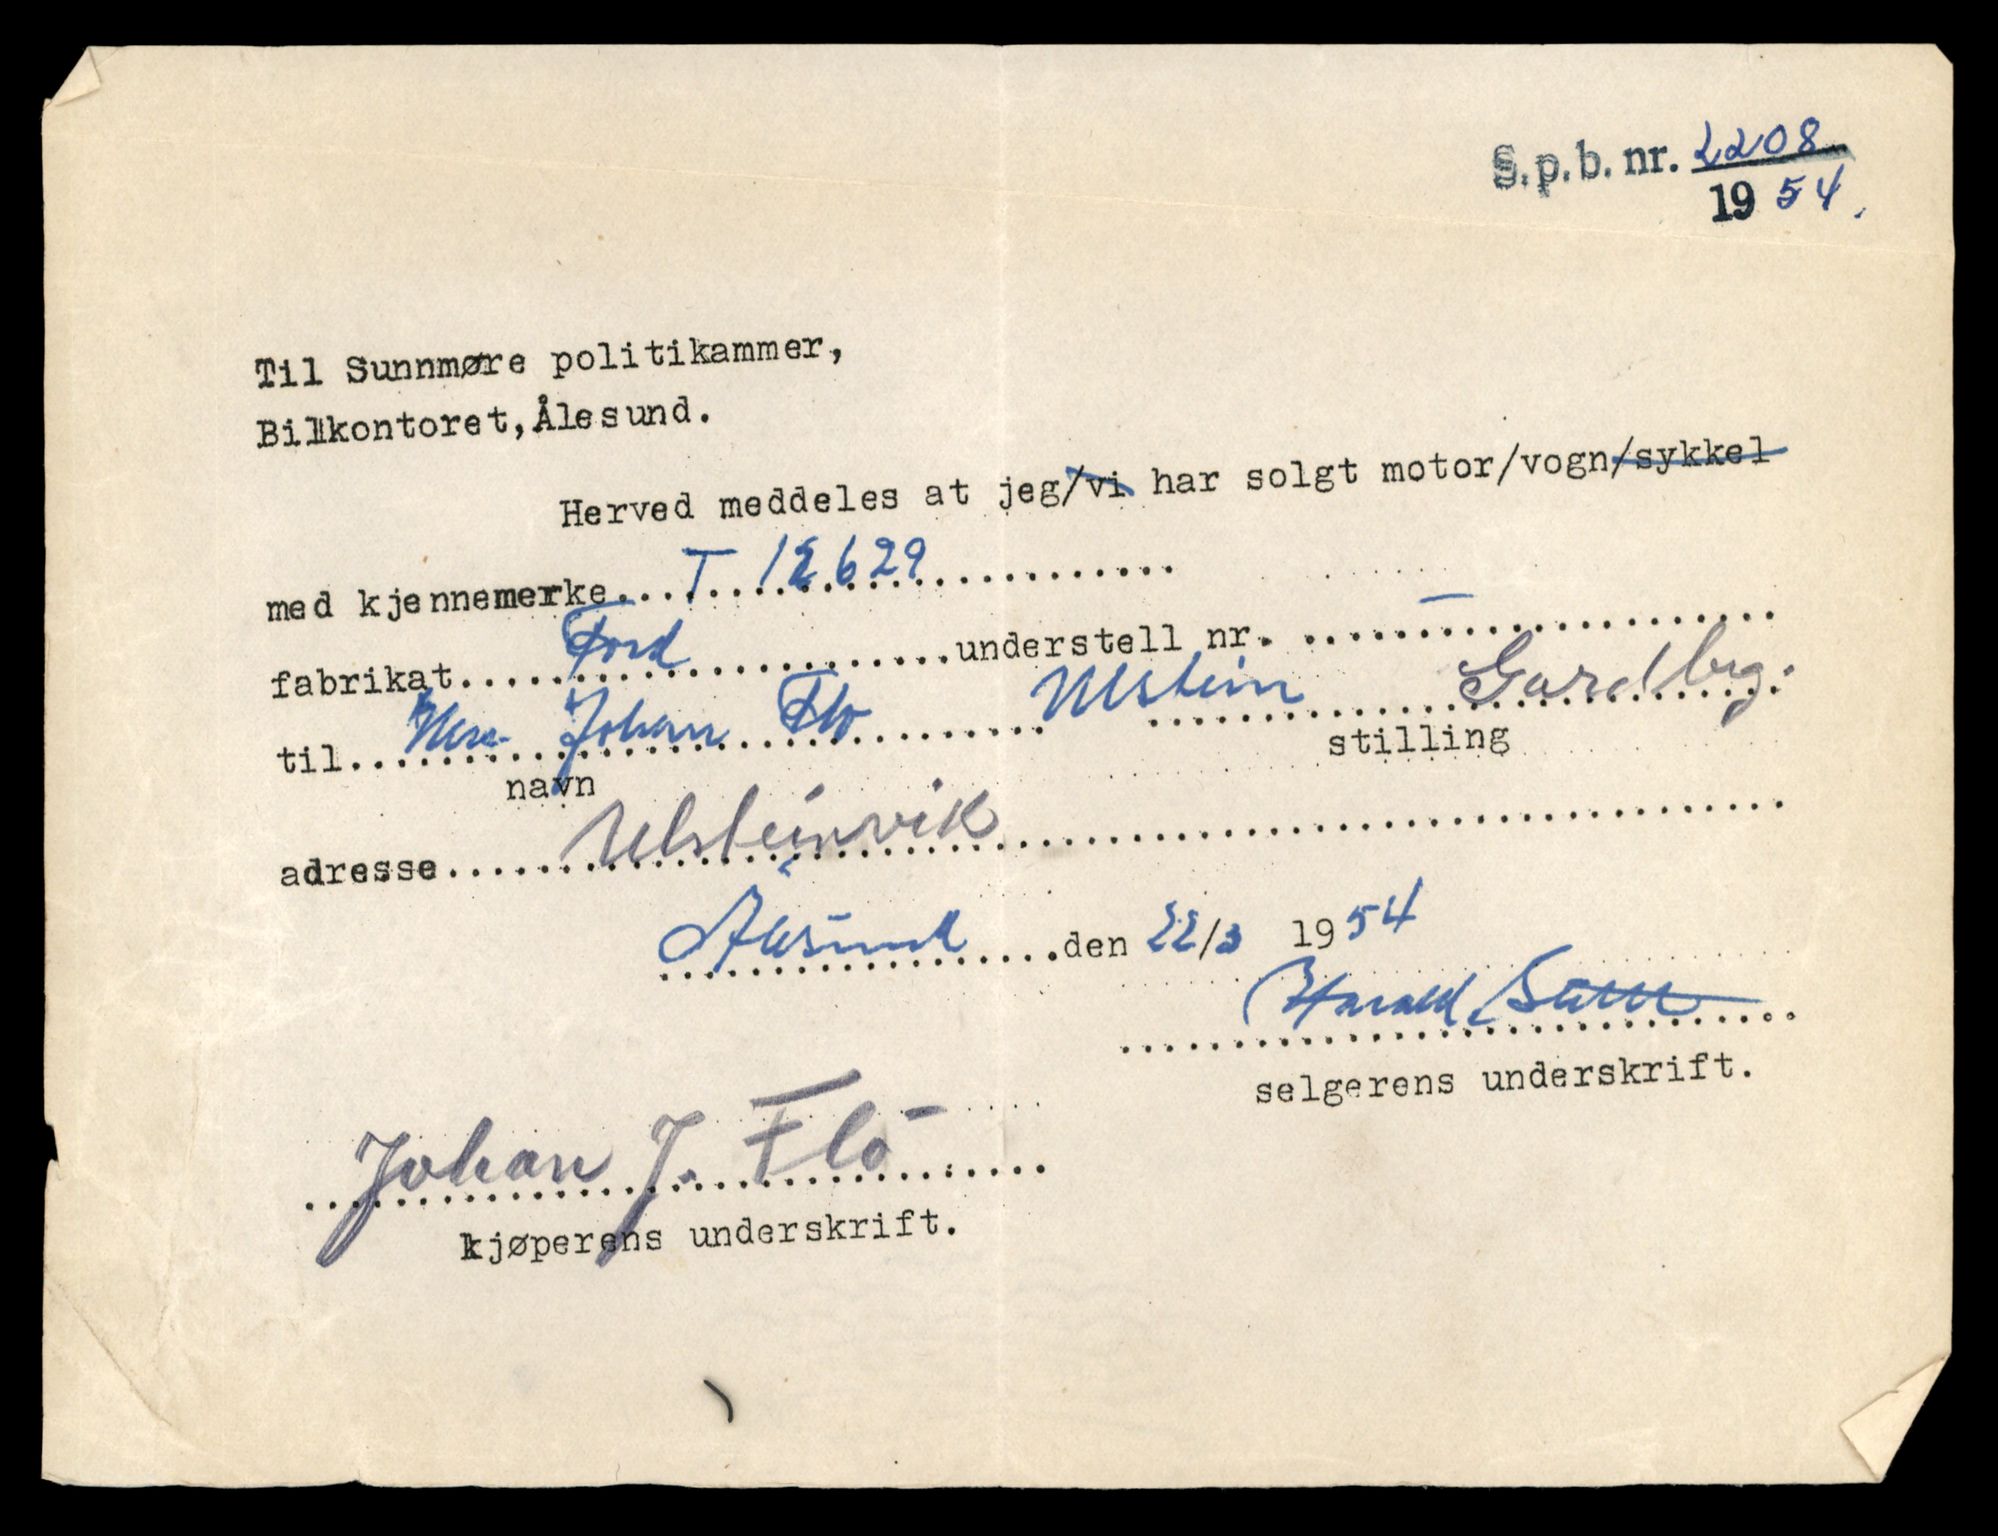 S.p.b. nr. 2208
1954.
Til Sunnmøre politikammer,
Bilkontoret, Ålesund.
Herved meddeles at jeg/vi har solgt motor/vogn/sykkel
med kjennemerke....T 12629....................
fabrikat.....Ford..............understell nr. .....–...............
til....Herr Johan Flo......... Ulstein ........Gardbrg.
navn stilling
adresse.....Ulsteinvik...................................
Ålesund....den 22/3 1954
Harald
selgerens underskrift.
Johan J. Flo
kjøperens underskrift.